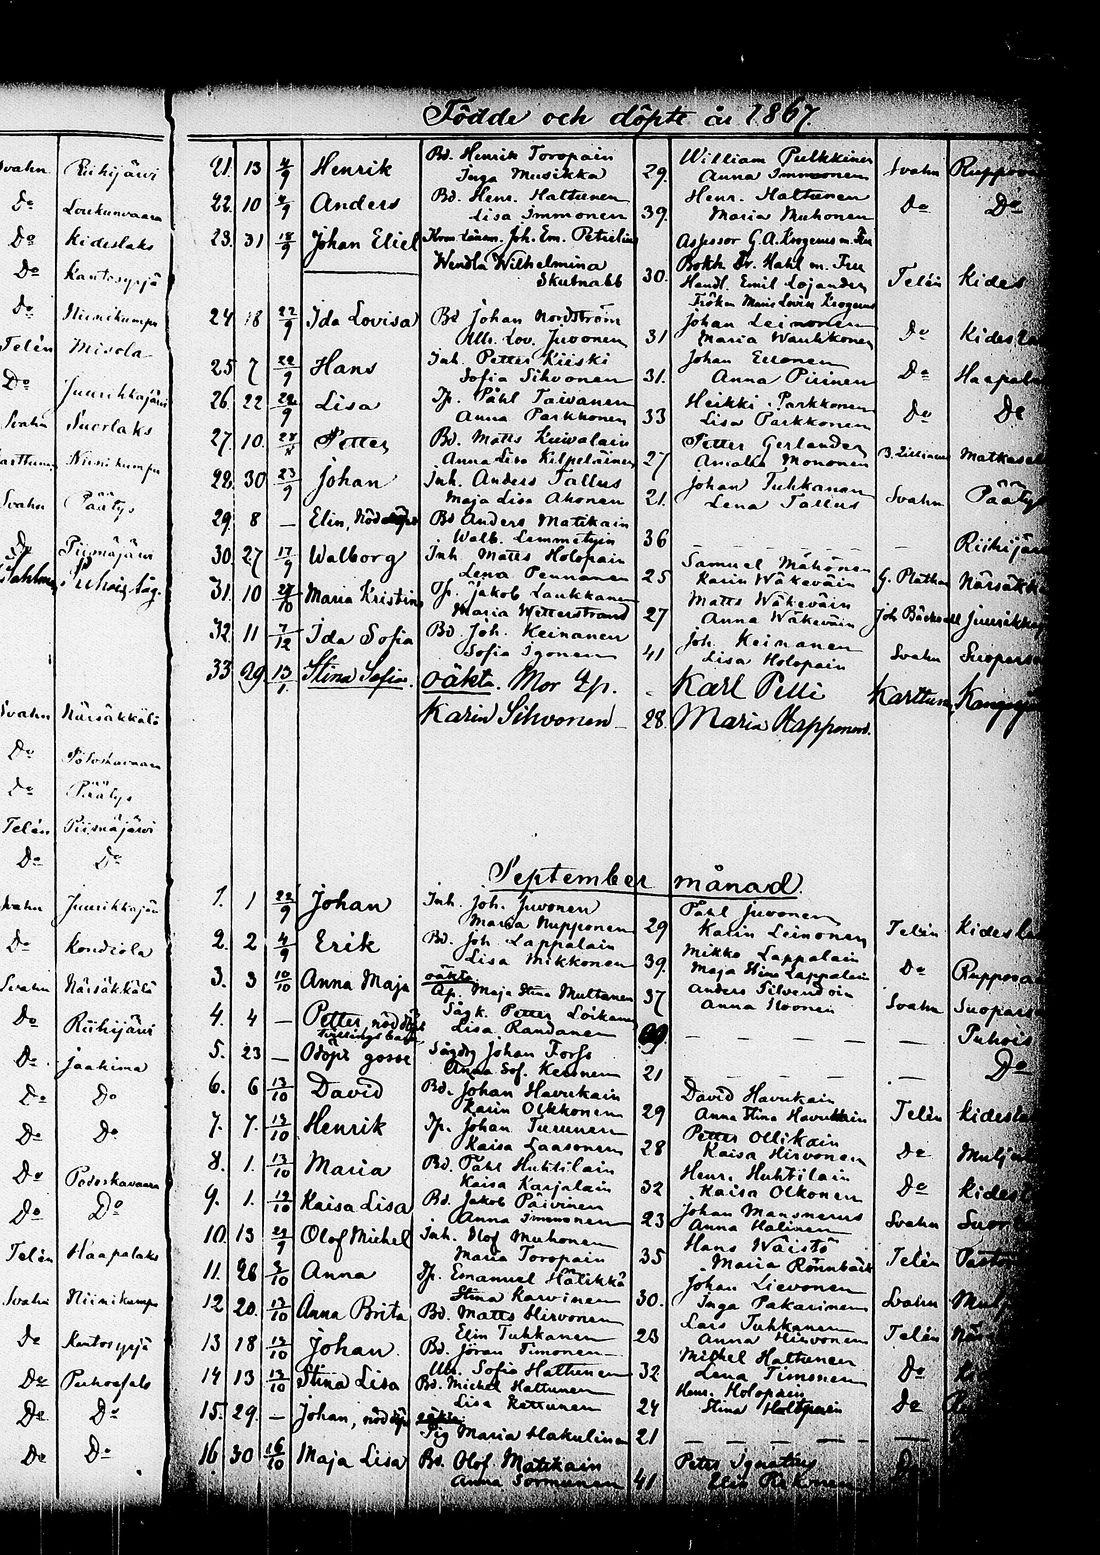 Födde och döpte år 1867.
Svahn Riihijärvi
Do Lourkunvaara
Do Kideslaks
Do Kantosyrjä
Do Niinikumpu
Telén Misola
Do Juurikkajärvi
Svahn Suorlaks
Karttunen Niinikumpu
Svahn Päätys
Do Piimäjärvi
Svahn Närsäkkälä
Do Potoskavaara
Do Päätys
Telén Piimäjärvi
Do Do
Svahn Juurikkajärvi
Do Kondiola
Svahn Närsäkkälä
Do Riihijärvi
Do Jaakima
Do Do
Do Do
Do Potoskavaara
Do Do
Telén Haapalaks
Svahn Niinikumpu
Do Kantosyrjä
Do Puhossalo
Do Do
Do Do
21. 13 4/9 Henrik Bd. Henrik Toropain William Pulkkinen Svahn
Inga Musikka 29. Anna Immonen
22. 10 4/9 Anders Bd. Henr. Hattunen Henr. Hattunen Do Do
Lisa Immonen 39. Maria Muhonen
23. 31 18/9 Johan Eliel Kronolänsm. Joh. Em. Petrelius Assessor G. A. Krogerus m. Fru
Wendla Wilhelmina Bokh. Fr. Hahl m. Fru
Skutnabb 30. Handl. Emil Lojander Telén Kides
Fröken Maria Lovisa Krogerus
24 18 22/9 Ida Lovisa Bd Johan Nordström Johan Leinonen Do
Ulr. Lov. Juvonen 31 Maria Wauhkonen
25 7 22/9 Hans Inh. Petter Kiiski Johan Eronen Do
Sofia Sihvonen 31. Anna Piirinen
26. 22 22/9 Lisa Tp. Påhl Taivanen Heikki Parkkonen Do Do
Anna Parkkonen 33 Lisa Parkkonen
27. 10. Petter Bd. Matts Kuivalain Petter Gerlander
Anna Lisa Kilpeläinen 27 Amalia Mononen
28. 30 23/9 Johan Inh. Anders Tallus Johan Tuhkanen Svahn Päätys
Maja Lisa Ahonen 21. Lena Tallus
29. 8 — Elin, nöddöpt Bd Anders Matikain — — —
Walb. Lemmetyin 36
30. 27 17/9 Walborg Inh. Matts Holopain Samuel Mähönen G. Plathan
Lena Pennanen 25 Karin Wäkeväin
31. 10 27/10 Maria Kristina Tp. Jakob Laukkanen Matts Wäkeväin Joh Bäckvall
Maria Wetterstrand 27 Anna Wäkeväin
32. 11 7/12 Ida Sofia Bd. Joh. Keinanen Joh. Keinanen Svahn
Sofia Igonen 41 Lisa Holopain
33 29 13/1 Stina Sofia. oäkta. Mor Tp. Karl Pelli Karttunen
Karin Sihvonen 28. Maria Happonen.
September månad.
1. 1 22/9 Johan Inh. Joh. Juvonen Påhl Juvonen Telén
Maria Nupponen 29 Karin Leinonen
2. 2 4/9 Erik Bd. Joh. Lappalain Mikko Lappalain Do
Lisa Mikkonen 39. Maja Stina Lappalain
3. 3 10/10 Anna Maja oäkta Anders Silvendoin Svahn
Ap. Maja Stina Multanen 37 Anna Noonen
4. 4 — Petter, nöddöpt Sågk. Petter Loikanen — — — Puhois
Lisa Randanen
5. 23 — Odöpt gosse Sågdrg Johan Forss — — — Do
Anna Sof. Kessonen 21
6. 6 13/10 David Bd. Johan Havukain David Havukain Telén
Karin Olkkonen 29 Anna Stina Havukain
7. 7. 13/10 Henrik Tp. Johan Turunen Petter Ollikain Do
Kaisa Laasonen 28 Kaisa Hirvonen
8. 1. 13/10 Maria Bd. Påhl Huhtilain Henr. Huhtilain Do
Kaisa Karjalain 32 Kaisa Olkonen
9. 1. 12/10 Kaisa Lisa Bd. Jakob Päivinen Johan Mansnerus Svahn
Anna Immonen 23 Anna Halinen
10. 13 29/9 Olof Michel Inh. Olof Muhonen Hans Wäistö Telén
Maria Toropain 35 Maria Rönnbäck
11. 26 Anna Tp. Emanuel Hälikkä Johan Lievonen Svahn
Stina Karvinen 30. Inga Pakarinen
12 20. 13/10 Anna Brita Bd. Matts Hirvonen Lars Tuhkanen Telén
Elin Tuhkanen 23 Anna Hirvonen
13 18 12/10 Johan. Bd. Jöran Timonen Michel Hattunen Do
Ulr. Sofia Hattunen 32 Lena Timonen
14 13 13/10 Stina Lisa Bd. Michel Hattunen Henr. Holopain Do
Lisa Rettunen 24 Stina Holopain
15. 29. — Johan, nöddöpt oäkta — — —
Pig Maria Hakulinen 21
16. 30 16/10 Maja Lisa Bd. Olof Matikain Peter Ignatius Do
Anna Sormunen 41